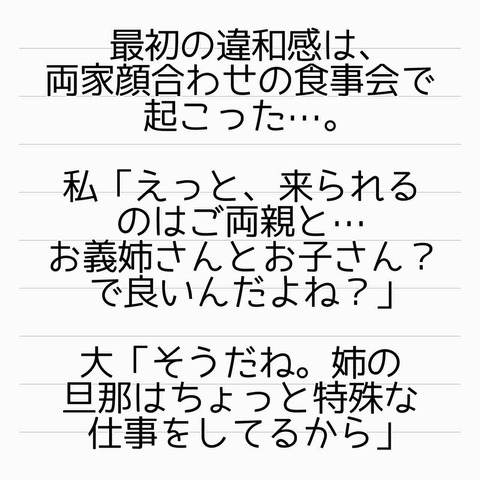 最初の違和感は、
両家顔合わせの食事会で
起こった…。
私「えっと、来られる
のはご両親と…
お義姉さんとお子さん？
で良いんだよね？」
大「そうだね。姉の
旦那はちょっと特殊な
仕事をしてるから」